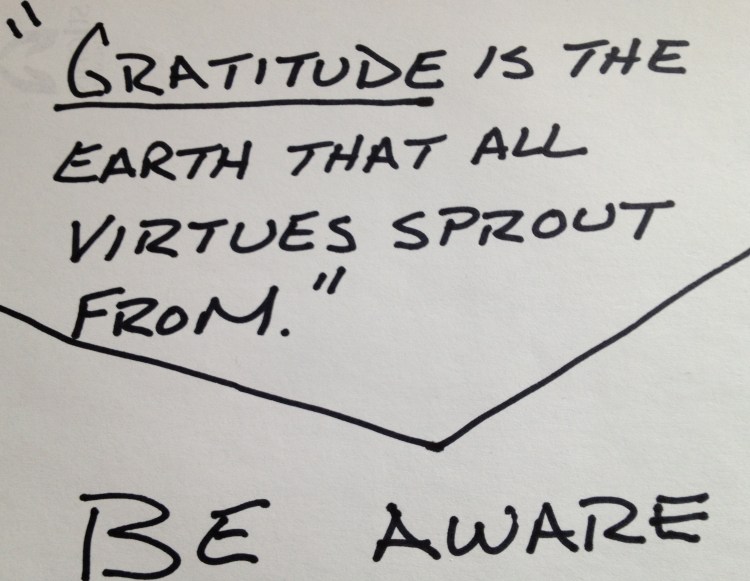 "GRATITUDE IS THE
EARTH THAT ALL
VIRTUES SPROUT
FROM."
BE AWARE